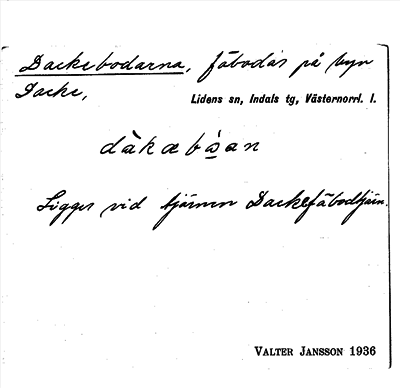 Dackebodarna, fäbodas på byn
Backe,
Lidens sn, Indals tg, Västernorrl. l.
dàkæbò̠an
Ligger vid tjärnen Dackefäbodtjärn.
VALTER JANSSON 1936